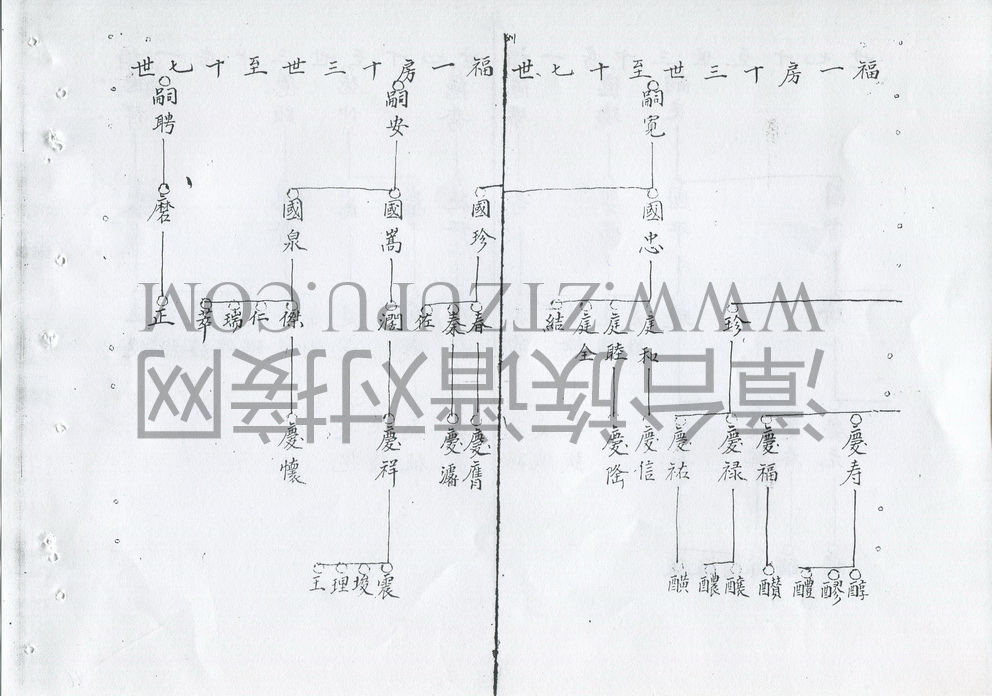 福一房十三世至十七世
嗣寬
國忠
國珍
珍
庭和
庭睦
庭全
結
春
秦
慶寿
慶福
慶禄
慶祐
慶信
慶隆
慶膺
慶瀟
醇
醪
醴
醲
釀
福一房十三世至十七世
嗣安
國嵩
國泉
傑
仁
瑞
萃
慶祥
慶懷
震
埈
理
王
嗣聘
磨
正
WWW.ZTZUPU.COM
漳台族谱对接网